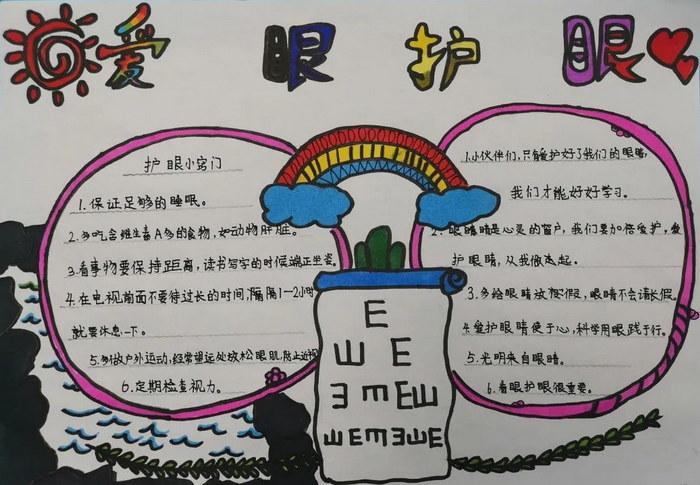 爱眼护眼
护眼小窍门
1.保证足够的睡眠。
2.多吃含维生素A多的食物,如动物肝脏。
3.看事物要保持距离,读书写字的时候端正坐姿。
4.在电视前面不要待过长的时间,隔隔1-2小时
就要休息一下。
5.多做户外运动,经常望远处放松眼肌,防止近视
6.定期检查视力。
1.小伙伴们,只有爱护好了我们的眼睛,
我们才能好好学习。
2.眼睛睛是心灵的窗户,我们要加倍爱护,爱
护眼睛,从我做起。
3.多给眼睛放假,眼睛不会请长假。
4.爱护眼睛使于心,科学用眼践于行。
5.光明来自眼睛。
6.看眼护眼很重要。
E
Ш E
Ǝ E Ш
Ш E Ǝ Ш E